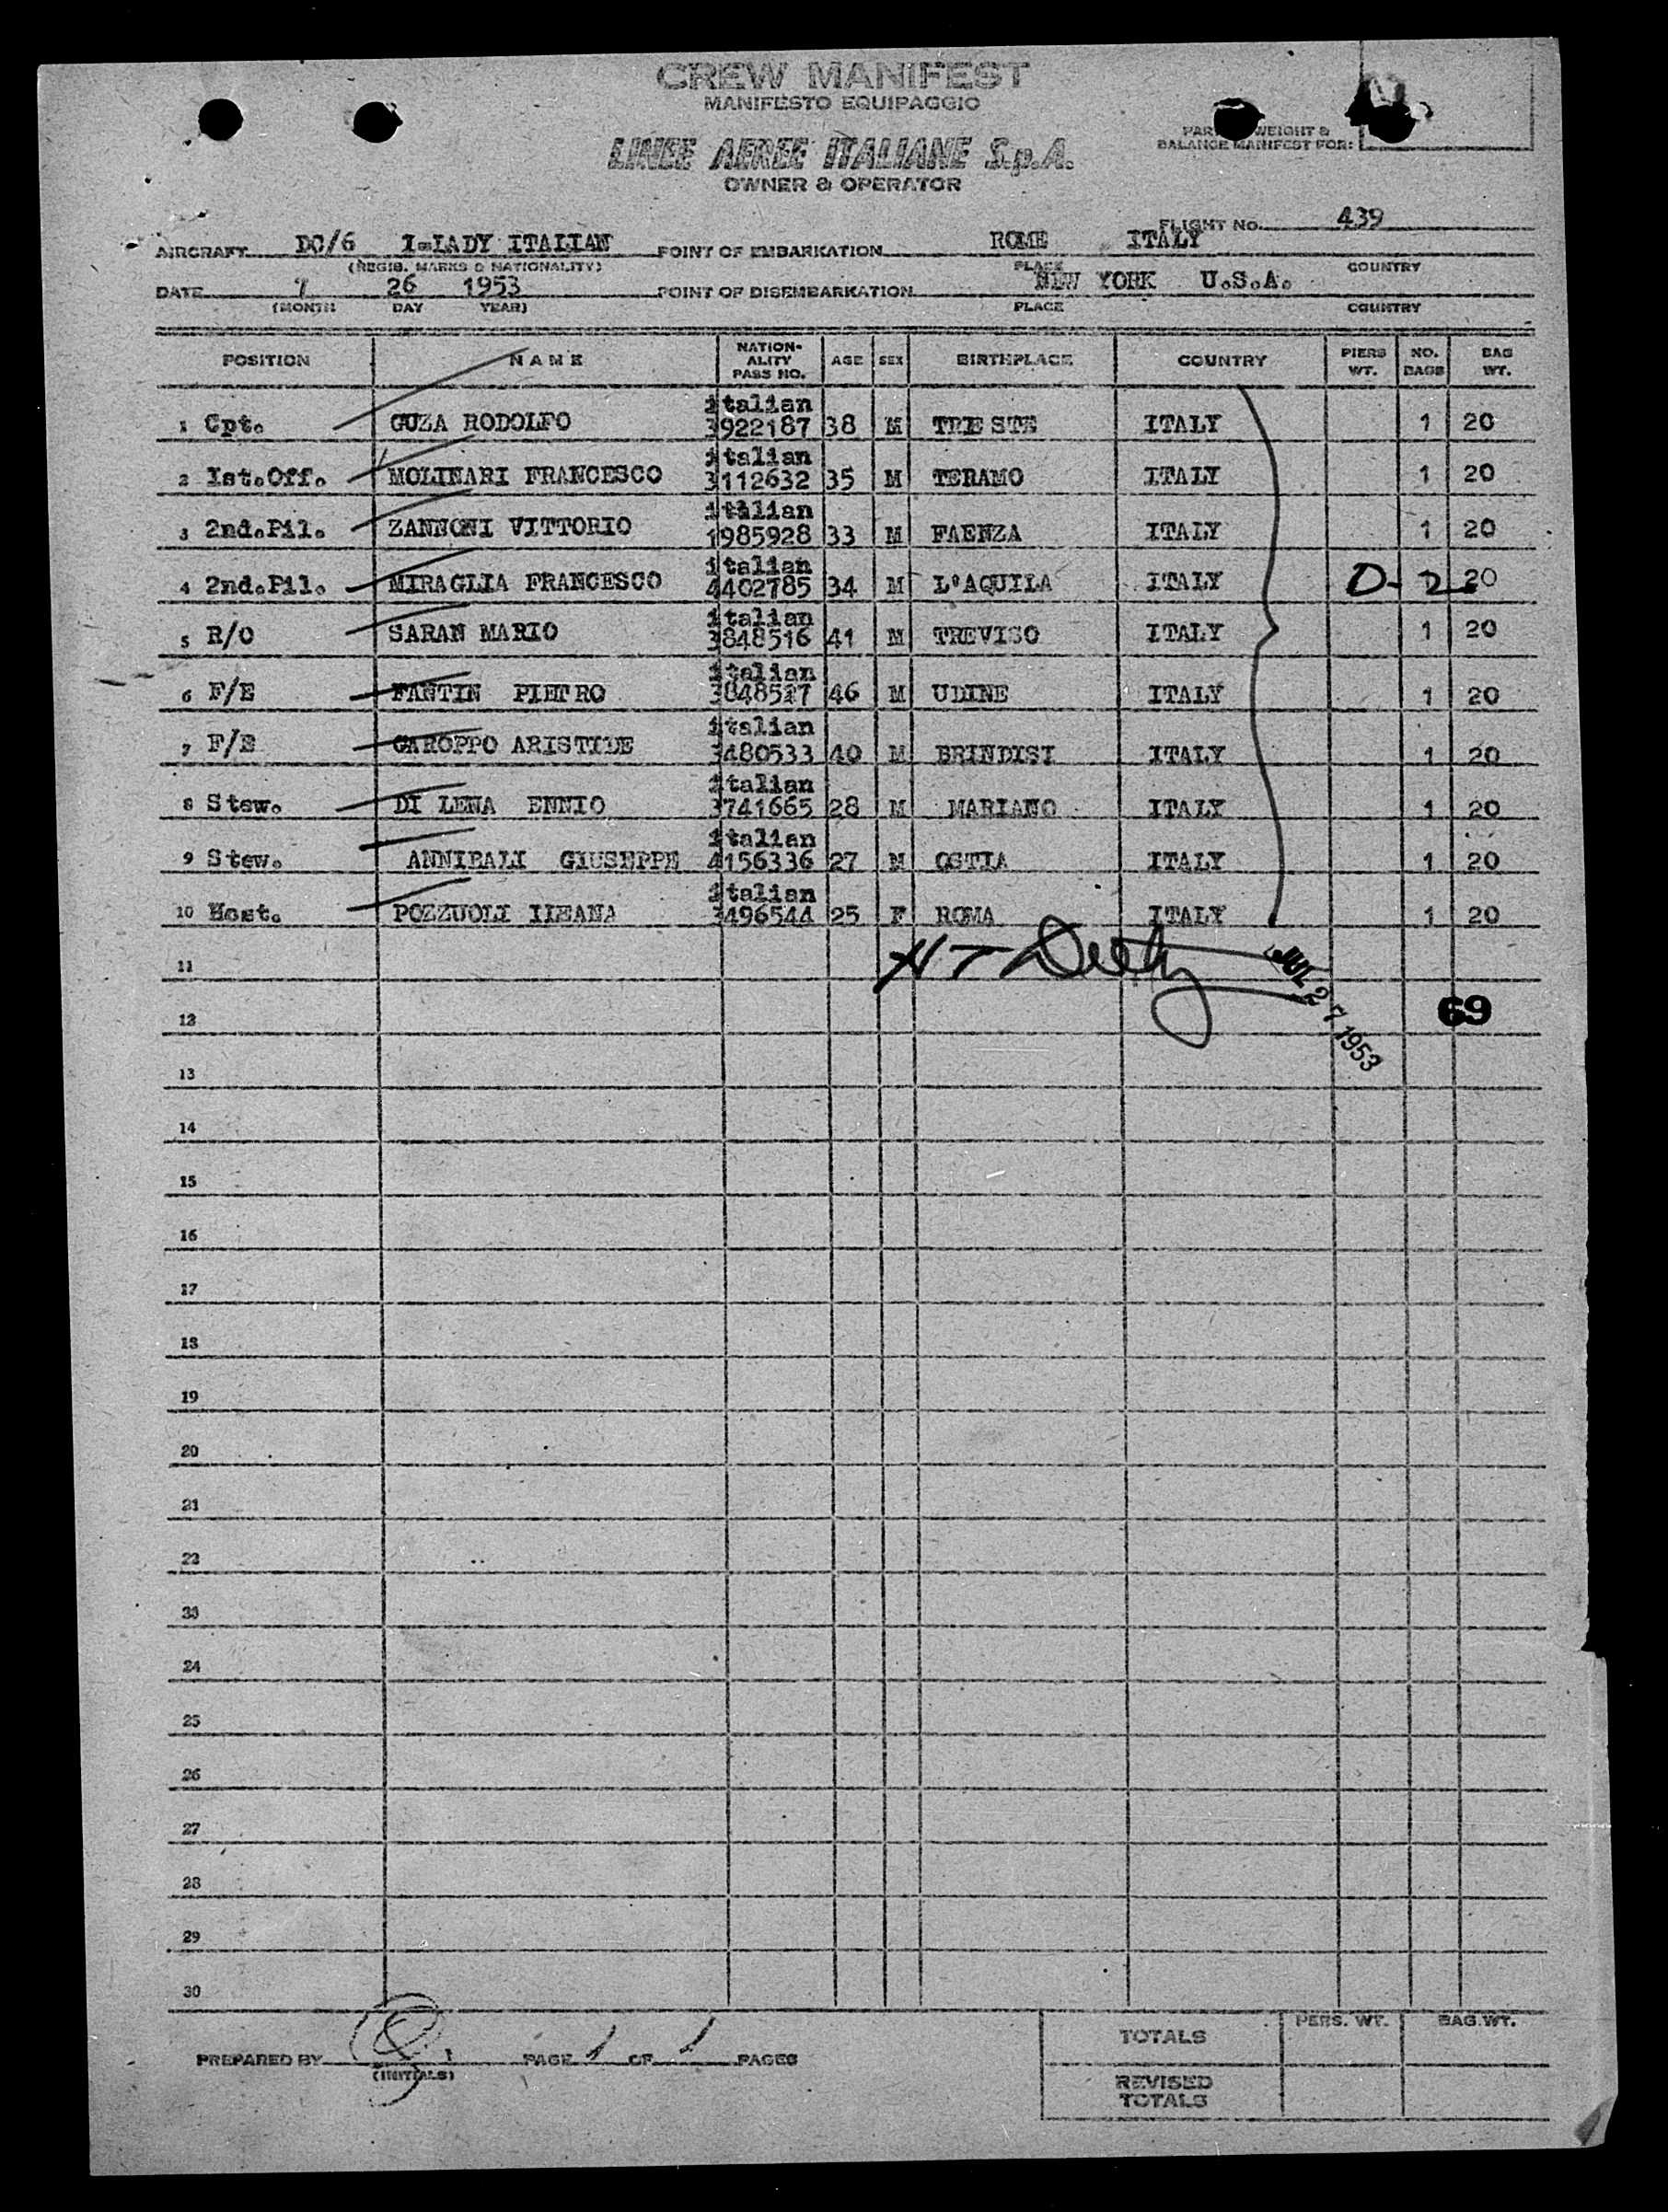 CREW MANIFEST
MANIFESTO EQUIPAGGIO
LINEE AEREE ITALIANE S.p.A.
OWNER & OPERATOR
WEIGHT &
BALANCE MANIFEST FOR:
FLIGHT NO. 439
AIRCRAFT DC/6 I-LADY ITALIAN POINT OF EMBARKATION ROME ITALY
(REGIS. MARKS & NATIONALITY) PLACE COUNTRY
DATE 7 26 1953 POINT OF DISEMBARKATION NEW YORK U.S.A.
(MONTH DAY YEAR) PLACE COUNTRY
POSITION NAME NATION-ALITY PASS NO. AGE SEX BIRTHPLACE COUNTRY PIERS WT. NO. BAGS BAG WT.
1 Cpt. GUZA RODOLFO italian 3922187 38 M TRIESTE ITALY 1 20
2 Ist.Off. MOLINARI FRANCESCO italian 3112632 35 M TERAMO ITALY 1 20
3 2nd.Pil. ZANNONI VITTORIO italian 1985928 33 M FAENZA ITALY 1 20
4 2nd.Pil. MIRAGLIA FRANCESCO italian 4402785 34 M L'AQUILA ITALY D-2 20
5 R/O SARAN MARIO italian 3848516 41 M TREVISO ITALY 1 20
6 F/E FANTIN PIETRO italian 46 M UDINE ITALY 1 20
7 F/E GAROPPO ARISTIDE italian 3480533 40 M BRINDISI ITALY 1 20
8 Stew. DI LENA ENNIO italian 3741665 28 M MARIANO ITALY 1 20
9 Stew. ANNIBALI GIUSEPPE italian 4156336 27 M OSTIA ITALY 1 20
10 Host. POZZUOLI ILEANA italian 3496544 25 F ROMA ITALY 1 20
11
JUL 27 1953
12
69
13
14
15
16
17
18
19
20
21
22
23
24
25
26
27
28
29
30
PREPARED BY (INITIALS) PAGE 1 OF 1 PAGES
PERS. WT. BAG WT.
TOTALS
REVISED TOTALS